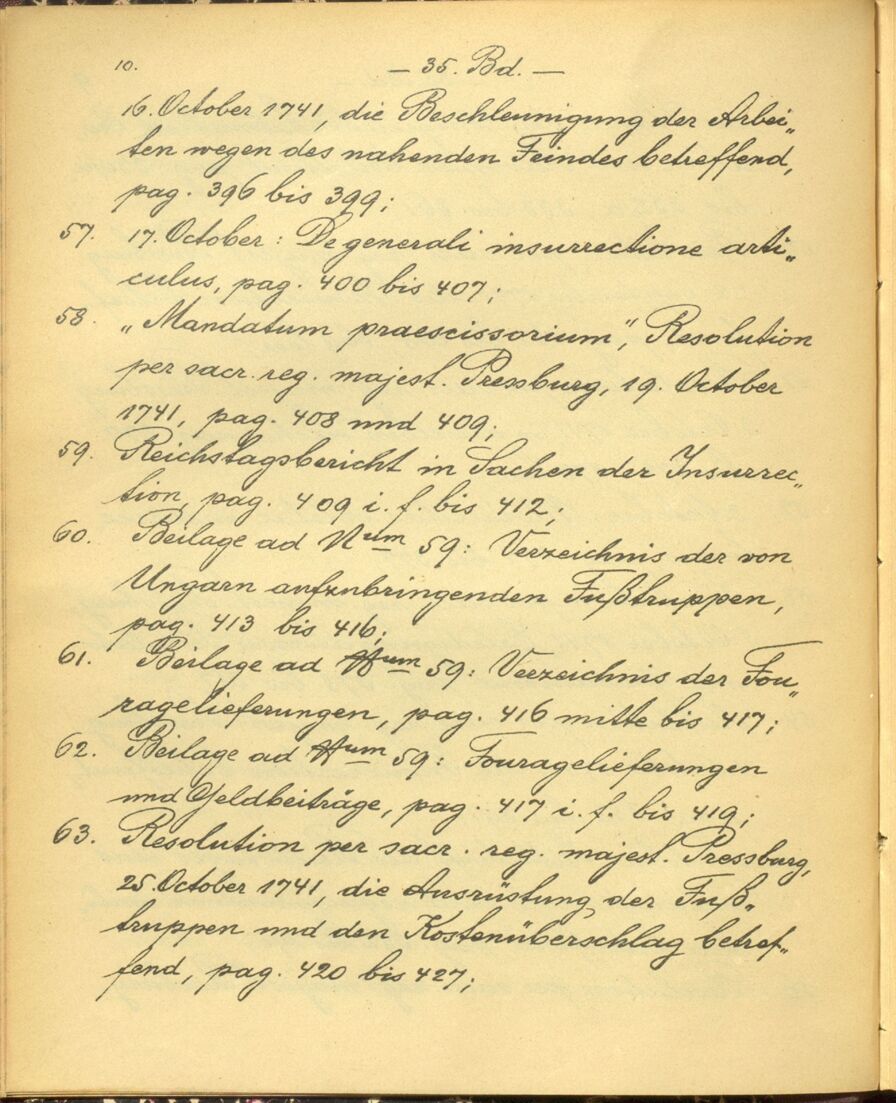 10.
— 35. Bd. —
16. October 1741, die Beschleunigung der Arbei„
ten wegen des nahenden Feindes betreffend,
pag. 396 bis 399;
57. 17. October: De generali insurrectione arti„
culus, pag. 400 bis 407;
58. „Mandatum praescissorium", Resolution
per sacr. reg. majest. Pressburg, 19. October
1741, pag. 408 und 409;
59. Reichstagsbericht in Sachen der Insurrec„
tion, pag. 409 i. f. bis 412;
60. Beilage ad Num 59: Verzeichnis der von
Ungarn aufzubringenden Fußtruppen,
pag. 413 bis 416;
61. Beilage ad Num 59: Verzeichnis der Fou„
ragelieferungen, pag. 416 mitte bis 417;
62. Beilage ad Num 59: Fouragelieferungen
und Geldbeiträge, pag. 417 i. f. bis 419;
63. Resolution per sacr. reg. majest. Pressburg,
25. October 1741, die Ausrüstung der Fuß„
truppen und den Kostenüberschlag betref„
fend, pag. 420 bis 427;